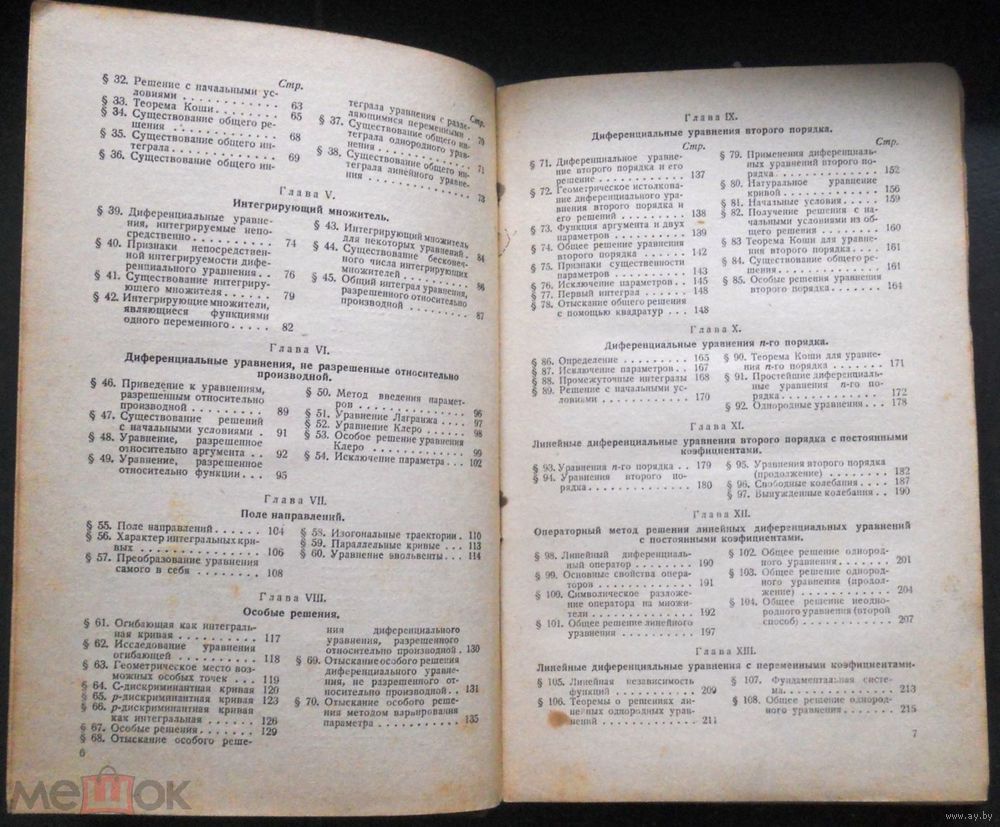 Стр.
§ 32. Решение с начальными ус-
ловиями . . . . . . . . . . . . 63
§ 33. Теорема Коши . . . . . . . . 65
§ 34. Существование общего ре-
шения . . . . . . . . . . . . . 68
§ 35. Существование общего ин-
теграла . . . . . . . . . . . . 69
§ 36. Существование общего ин-
Стр.
теграла уравнения с разде-
ляющимися переменными . . 70
§ 37. Существование общего ин-
теграла однородного урав-
нения . . . . . . . . . . . . . 71
§ 38. Существование общего ин-
теграла линейного уравне-
ния . . . . . . . . . . . . . . 73
Глава V.
Интегрирующий множитель.
§ 39. Диференциальные уравне-
ния, интегрируемые непо-
средственно . . . . . . . . . . 74
§ 40. Признаки непосредствен-
ной интегрируемости дифе-
ренциального уравнения . . 76
§ 41. Существование интегриру-
ющего множителя . . . . . . 79
§ 42. Интегрирующие множители,
являющиеся функциями
одного переменного . . . . . 82
§ 43. Интегрирующий множитель
для некоторых уравнений . . 84
§ 44. Существование бесконеч-
ного числа интегрирующих
множителей . . . . . . . . . . 86
§ 45. Общий интеграл уравнения,
разрешенного относительно
производной . . . . . . . . . . 87
Глава VI.
Диференциальные уравнения, не разрешенные относительно
производной.
§ 46. Приведение к уравнениям,
разрешенным относительно
производной . . . . . . . . . . 89
§ 47. Существование решений
с начальными условиями . 91
§ 48. Уравнение, разрешенное
относительно аргумента . . 92
§ 49. Уравнение, разрешенное
относительно функции . . . 95
§ 50. Метод введения парамет-
ров . . . . . . . . . . . . . . 96
§ 51. Уравнение Лагранжа . . . . 97
§ 52. Уравнение Клеро . . . . . . 98
§ 53. Особое решение уравнения
Клеро . . . . . . . . . . . . . 99
§ 54. Исключение параметра . . . 102
Глава VII.
Поле направлений.
§ 55. Поле направлений . . . . . . 104
§ 56. Характер интегральных кри-
вых . . . . . . . . . . . . . . 106
§ 57. Преобразование уравнения
самого в себя . . . . . . . . 108
§ 58. Изогональные траектории . 110
§ 59. Параллельные кривые . . . 113
§ 60. Уравнение эвольвенты . . . 114
Глава VIII.
Особые решения.
§ 61. Огибающая как интеграль-
ная кривая . . . . . . . . . . 117
§ 62. Исследование уравнения
огибающей . . . . . . . . . . 118
§ 63. Геометрическое место воз-
можных особых точек . . . 119
§ 64. C-дискриминантная кривая 120
§ 65. p-дискриминантная кривая 123
§ 66. p-дискриминантная кривая
как интегральная . . . . . . 126
§ 67. Особые решения . . . . . . . 129
§ 68. Отыскание особого реше-
ния диференциального
уравнения, разрешенного
относительно производной . 130
§ 69. Отыскание особого решения
диференциального уравне-
ния, не разрешенного от-
носительно производной . . 131
§ 70. Отыскание особого реше-
ния методом варьирования
параметра . . . . . . . . . . . 135
6
Глава IX.
Диференциальные уравнения второго порядка.
Стр.
§ 71. Диференциальное уравне-
ние второго порядка и его
решение . . . . . . . . . . . . 137
§ 72. Геометрическое истолкова-
ние диференциального ура-
внения второго порядка и
его решений . . . . . . . . . 138
§ 73. Функция аргумента и двух
параметров . . . . . . . . . . 139
§ 74. Общее решение уравнения
второго порядка . . . . . . . 142
§ 75. Признаки существенности
параметров . . . . . . . . . . 143
§ 76. Исключение параметров . . 145
§ 77. Первый интеграл . . . . . . 148
§ 78. Отыскание общего решения
с помощью квадратур . . . 148
Стр.
§ 79. Применения диференциаль-
ных уравнений второго по-
рядка . . . . . . . . . . . . . 152
§ 80. Натуральное уравнение
кривой . . . . . . . . . . . . . 156
§ 81. Начальные условия . . . . . 159
§ 82. Получение решения с на-
чальными условиями из об-
щего решения . . . . . . . . 160
§ 83 Теорема Коши для уравне-
ния второго порядка . . . . 161
§ 84. Существование общего ре-
шения . . . . . . . . . . . . . 161
§ 85. Особые решения уравнения
второго порядка . . . . . . . 164
Глава X.
Диференциальные уравнения n-го порядка.
§ 86. Определение . . . . . . . . . 165
§ 87. Исключение параметров . . 167
§ 88. Промежуточные интегралы 168
§ 89. Решение с начальными ус-
ловиями . . . . . . . . . . . . 170
§ 90. Теорема Коши для уравне-
ния n-го порядка . . . . . . 171
§ 91. Простейшие диференциаль-
ные уравнения n-го по-
рядка . . . . . . . . . . . . . 172
§ 92. Однородные уравнения . . . 178
Глава XI.
Линейные диференциальные уравнения второго порядка с постоянными
коефициентами.
§ 93. Уравнения n-го порядка . . 179
§ 94. Уравнения второго по-
рядка . . . . . . . . . . . . . 180
§ 95. Уравнения второго порядка
(продолжение) . . . . . . . . 182
§ 96. Свободные колебания . . . 187
§ 97. Вынужденные колебания . . 190
Глава XII.
Операторный метод решения линейных диференциальных уравнений
с постоянными коефициентами.
§ 98. Линейный диференциаль-
ный оператор . . . . . . . . . 190
§ 99. Основные свойства опера-
торов . . . . . . . . . . . . . 191
§ 100. Символическое разложе-
ние оператора на множи-
тели . . . . . . . . . . . . . . 192
§ 101. Общее решение линейного
уравнения . . . . . . . . . . . 197
§ 102. Общее решение однород-
ного уравнения . . . . . . . . 201
§ 103. Общее решение однород-
ного уравнения (продол-
жение) . . . . . . . . . . . . . 204
§ 104. Общее решение неодно-
родного уравнения (второй
способ) . . . . . . . . . . . . 207
Глава XIII.
Линейные диференциальные уравнения с переменными коефициентами.
§ 105. Линейная независимость
функций . . . . . . . . . . . . 209
§ 106. Теоремы о решениях ли-
нейных однородных урав-
нений . . . . . . . . . . . . . 211
§ 107. Фундаментальная систе-
ма . . . . . . . . . . . . . . . 213
§ 108. Общее решение однород-
ного уравнения . . . . . . . . 215
7
мешок
www.ay.by